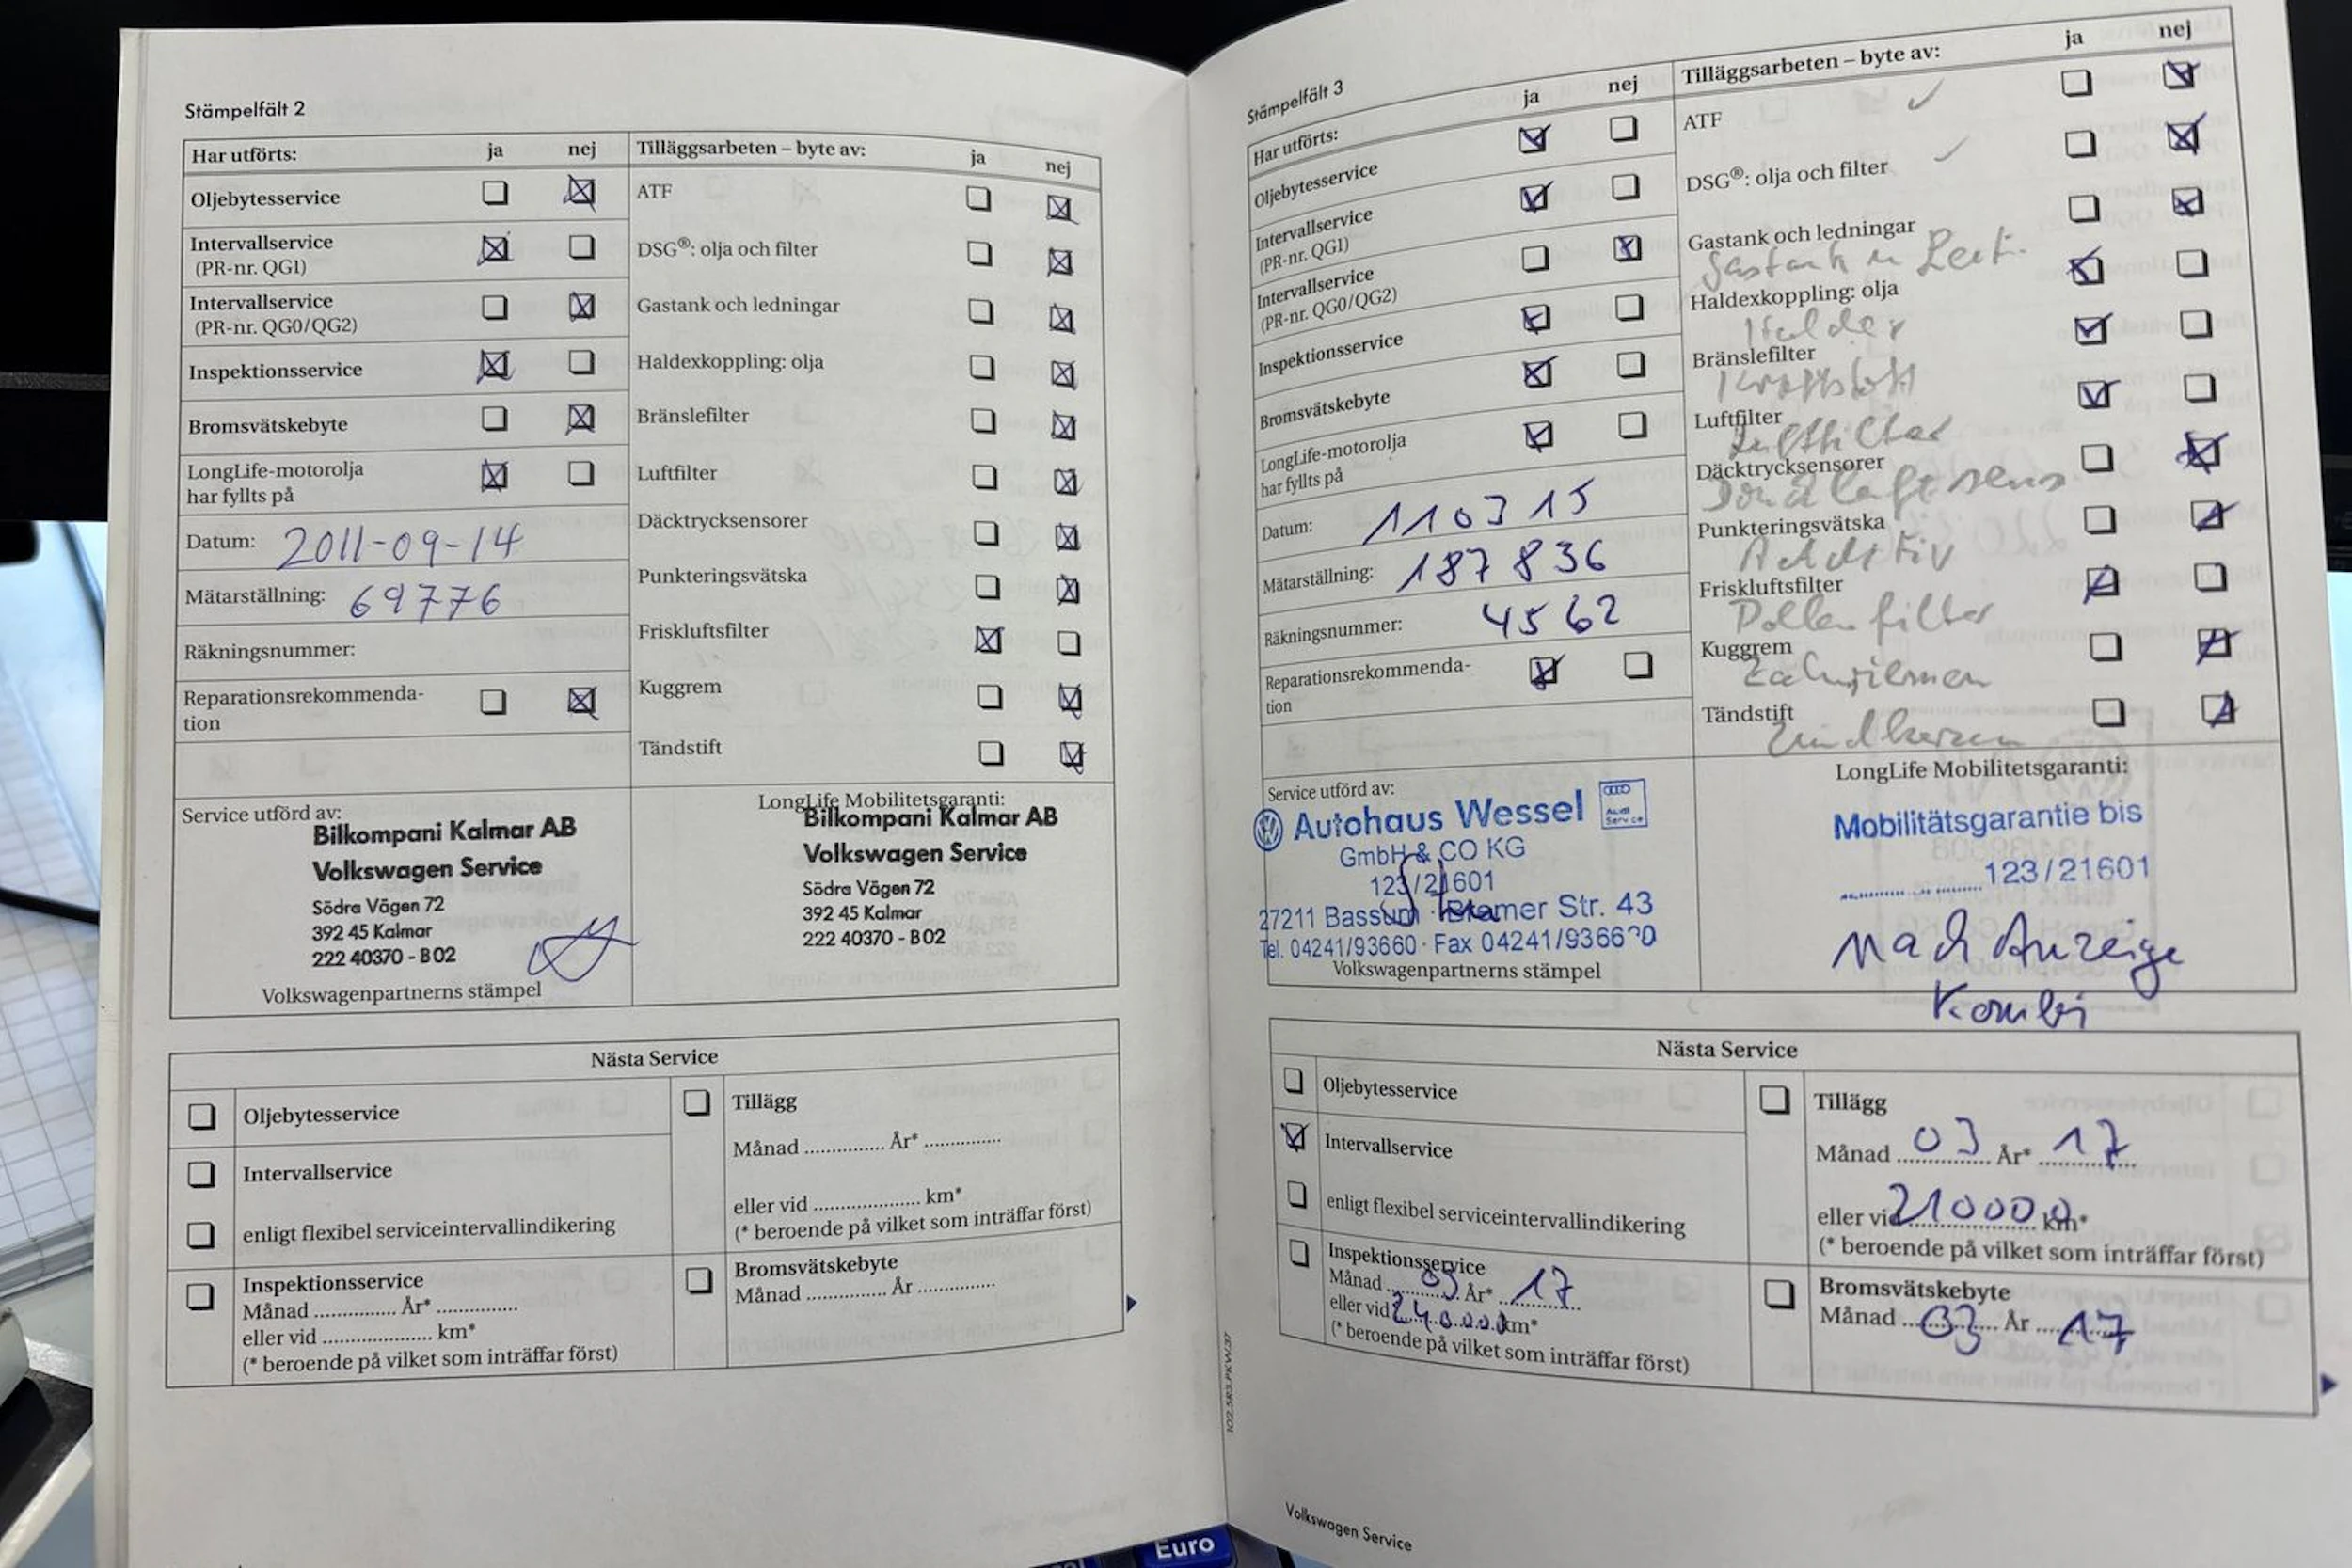 Stämpelfält 2
Har utförts: ja nej
Oljebytesservice
Intervallservice
(PR-nr. QG1)
Intervallservice
(PR-nr. QG0/QG2)
Inspektionsservice
Bromsvätskebyte
LongLife-motorolja
har fyllts på
Datum: 2011-09-14
Mätarställning: 69776
Räkningsnummer:
Reparationsrekommenda-
tion
Tilläggsarbeten – byte av: ja nej
ATF
DSG®: olja och filter
Gastank och ledningar
Haldexkoppling: olja
Bränslefilter
Luftfilter
Däcktrycksensorer
Punkteringsvätska
Friskluftsfilter
Kuggrem
Tändstift
Service utförd av:
Bilkompani Kalmar AB
Volkswagen Service
Södra Vägen 72
392 45 Kalmar
222 40370 - B02
Volkswagenpartnerns stämpel
LongLife Mobilitetsgaranti:
Bilkompani Kalmar AB
Volkswagen Service
Södra Vägen 72
392 45 Kalmar
222 40370 - B02
Nästa Service
Oljebytesservice
Intervallservice
enligt flexibel serviceintervallindikering
Inspektionsservice
Månad ............... År* ...............
eller vid .................... km*
(* beroende på vilket som inträffar först)
Tillägg
Månad ............... År* ..............
eller vid .................... km*
(* beroende på vilket som inträffar först)
Bromsvätskebyte
Månad ............... År ..............
Stämpelfält 3
Har utförts: ja nej
Oljebytesservice
Intervallservice
(PR-nr. QG1)
Intervallservice
(PR-nr. QG0/QG2)
Inspektionsservice
Bromsvätskebyte
LongLife-motorolja
har fyllts på
Datum: 110315
Mätarställning: 187836
Räkningsnummer: 4562
Reparationsrekommenda-
tion
Tilläggsarbeten – byte av: ja nej
ATF
DSG®: olja och filter
Gastank och ledningar
Gastank u Leit.
Haldexkoppling: olja
Haldex
Bränslefilter
Kraftstoff
Luftfilter
Luftfilter
Däcktrycksensorer
Punkteringsvätska
Friskluftsfilter
Pollenfilter
Kuggrem
Zahnriemen
Tändstift
Zündkerzen
Service utförd av:
Autohaus Wessel
Audi
Service
GmbH & CO KG
123/21601
27211 Bassum · Bremer Str. 43
Tel. 04241/93660 · Fax 04241/936620
Volkswagenpartnerns stämpel
LongLife Mobilitetsgaranti:
Mobilitätsgarantie bis
123/21601
Nach Anzeige
Kombi
Nästa Service
Oljebytesservice
Intervallservice
enligt flexibel serviceintervallindikering
Inspektionsservice
Månad 03 År* 17
eller vid 240.000 km*
(* beroende på vilket som inträffar först)
Tillägg
Månad 03 År* 17
eller vid 210000 km*
(* beroende på vilket som inträffar först)
Bromsvätskebyte
Månad 03 År 17
102.5R3.PKW.37
Volkswagen Service
Euro